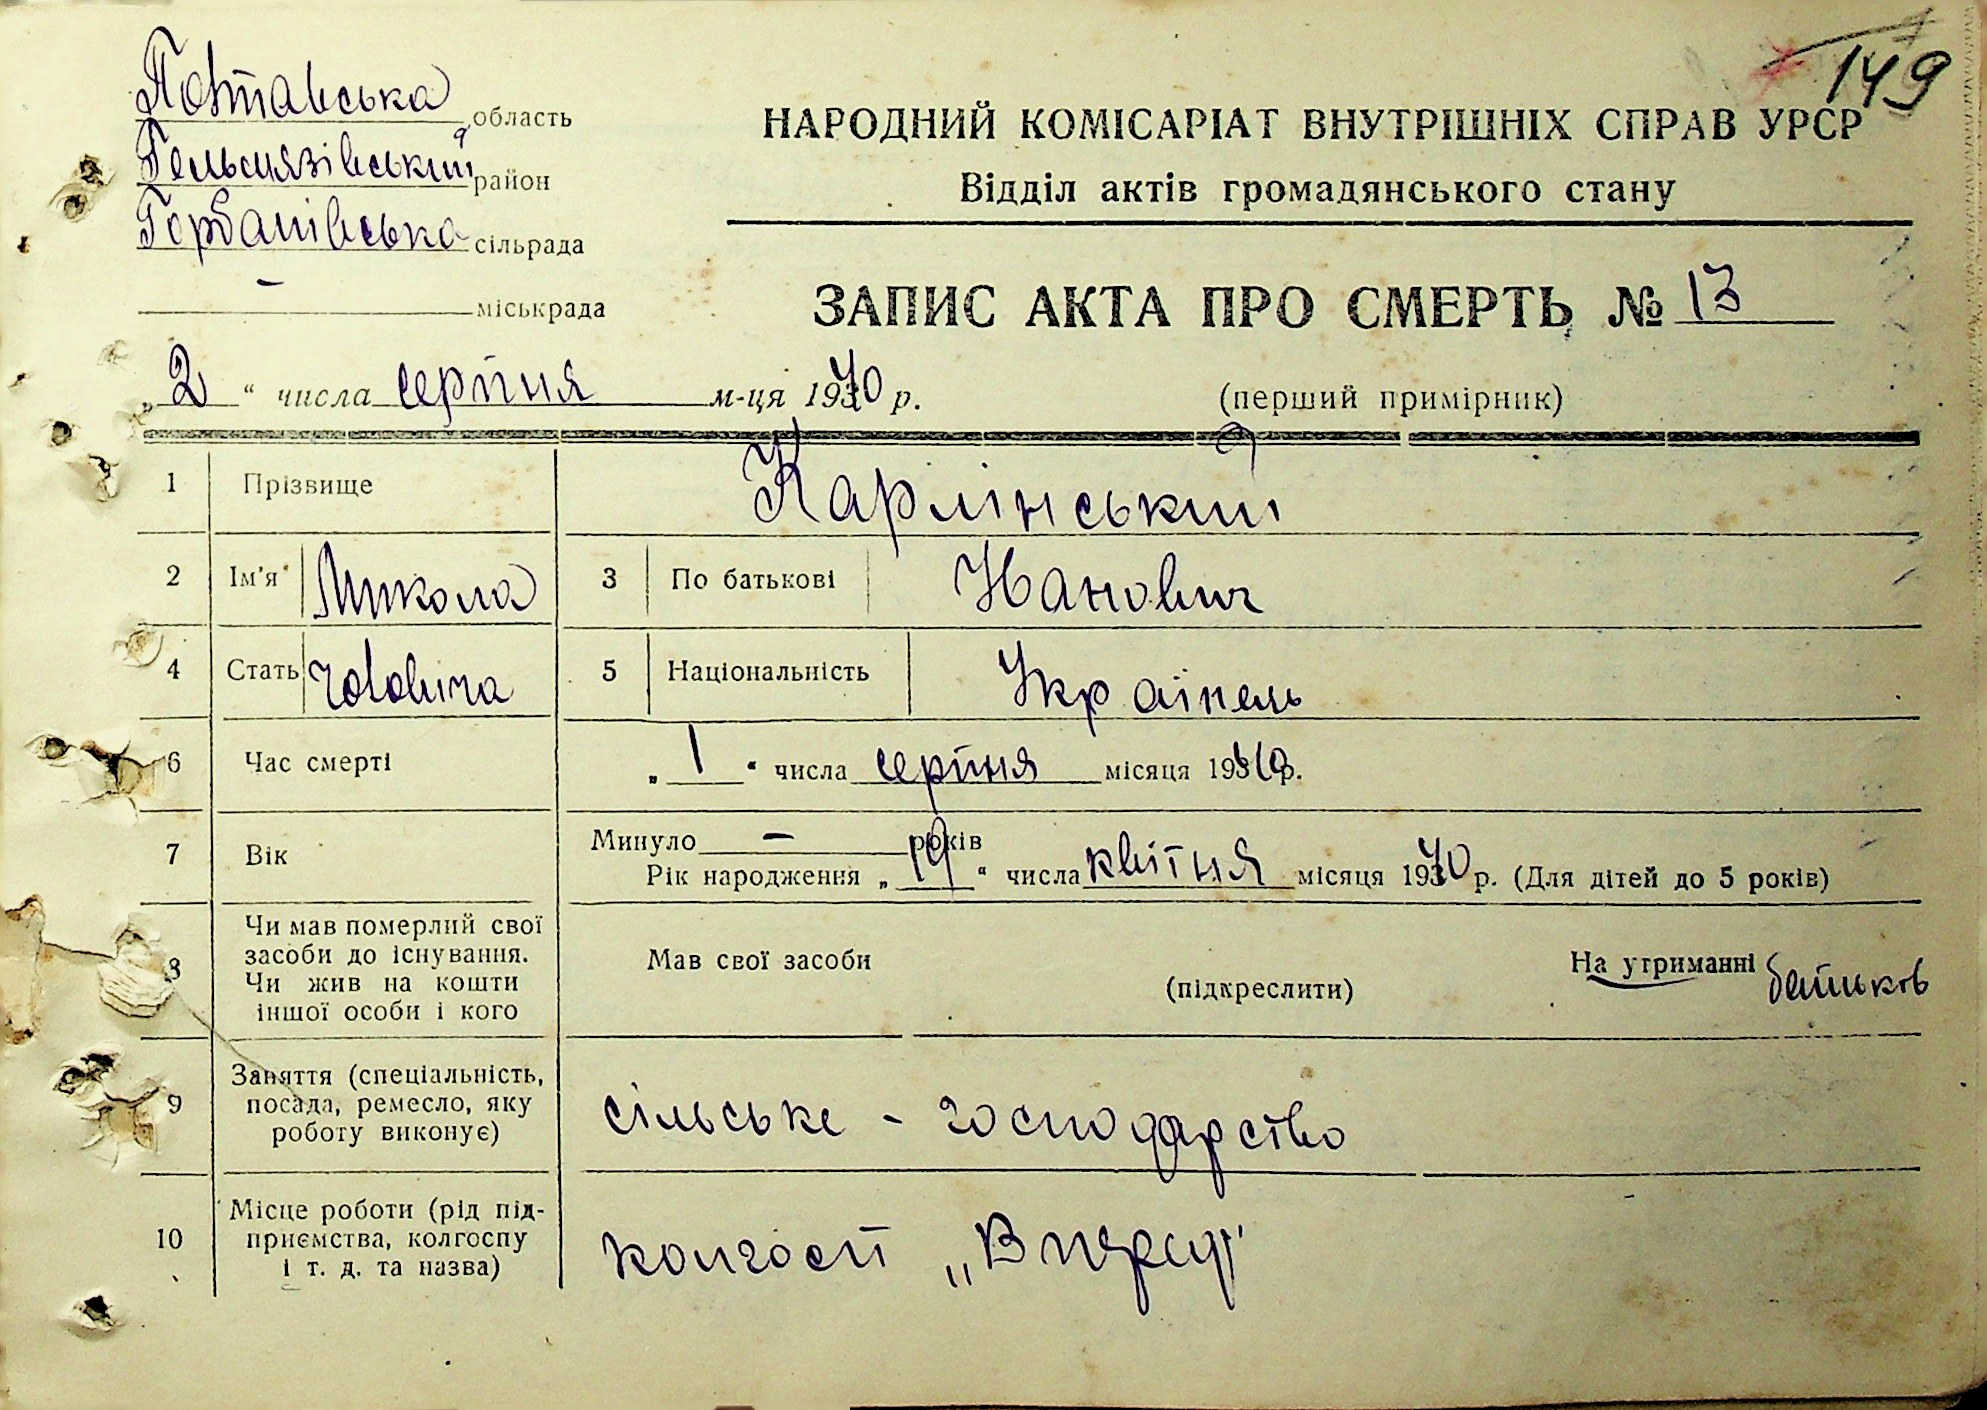 149
Полтавська область
Гельмязівський район
Горбанівська сільрада
- міськрада
НАРОДНИЙ КОМІСАРІАТ ВНУТРІШНІХ СПРАВ УРСР
Відділ актів громадянського стану
ЗАПИС АКТА ПРО СМЕРТЬ № 13
„2“ числа серпня м-ця 1940 р.
(перший примірник)
1 Прізвище Карлінський
2 Ім'я Микола 3 По батькові Іванович
4 Стать чоловіча 5 Національність Українець
6 Час смерті „1“ числа серпня місяця 1940 р.
7 Вік Минуло - років
Рік народження „19“ числа квітня місяця 1940 р. (Для дітей до 5 років)
8 Чи мав померлий свої
засоби до існування.
Чи жив на кошти
іншої особи і кого
Мав свої засоби (підкреслити) На утриманні батьков
9 Заняття (спеціальність,
посада, ремесло, яку
роботу виконує)
сільське - господарство
10 Місце роботи (рід під-
приємства, колгоспу
і т. д. та назва)
колгосп „Вперед"